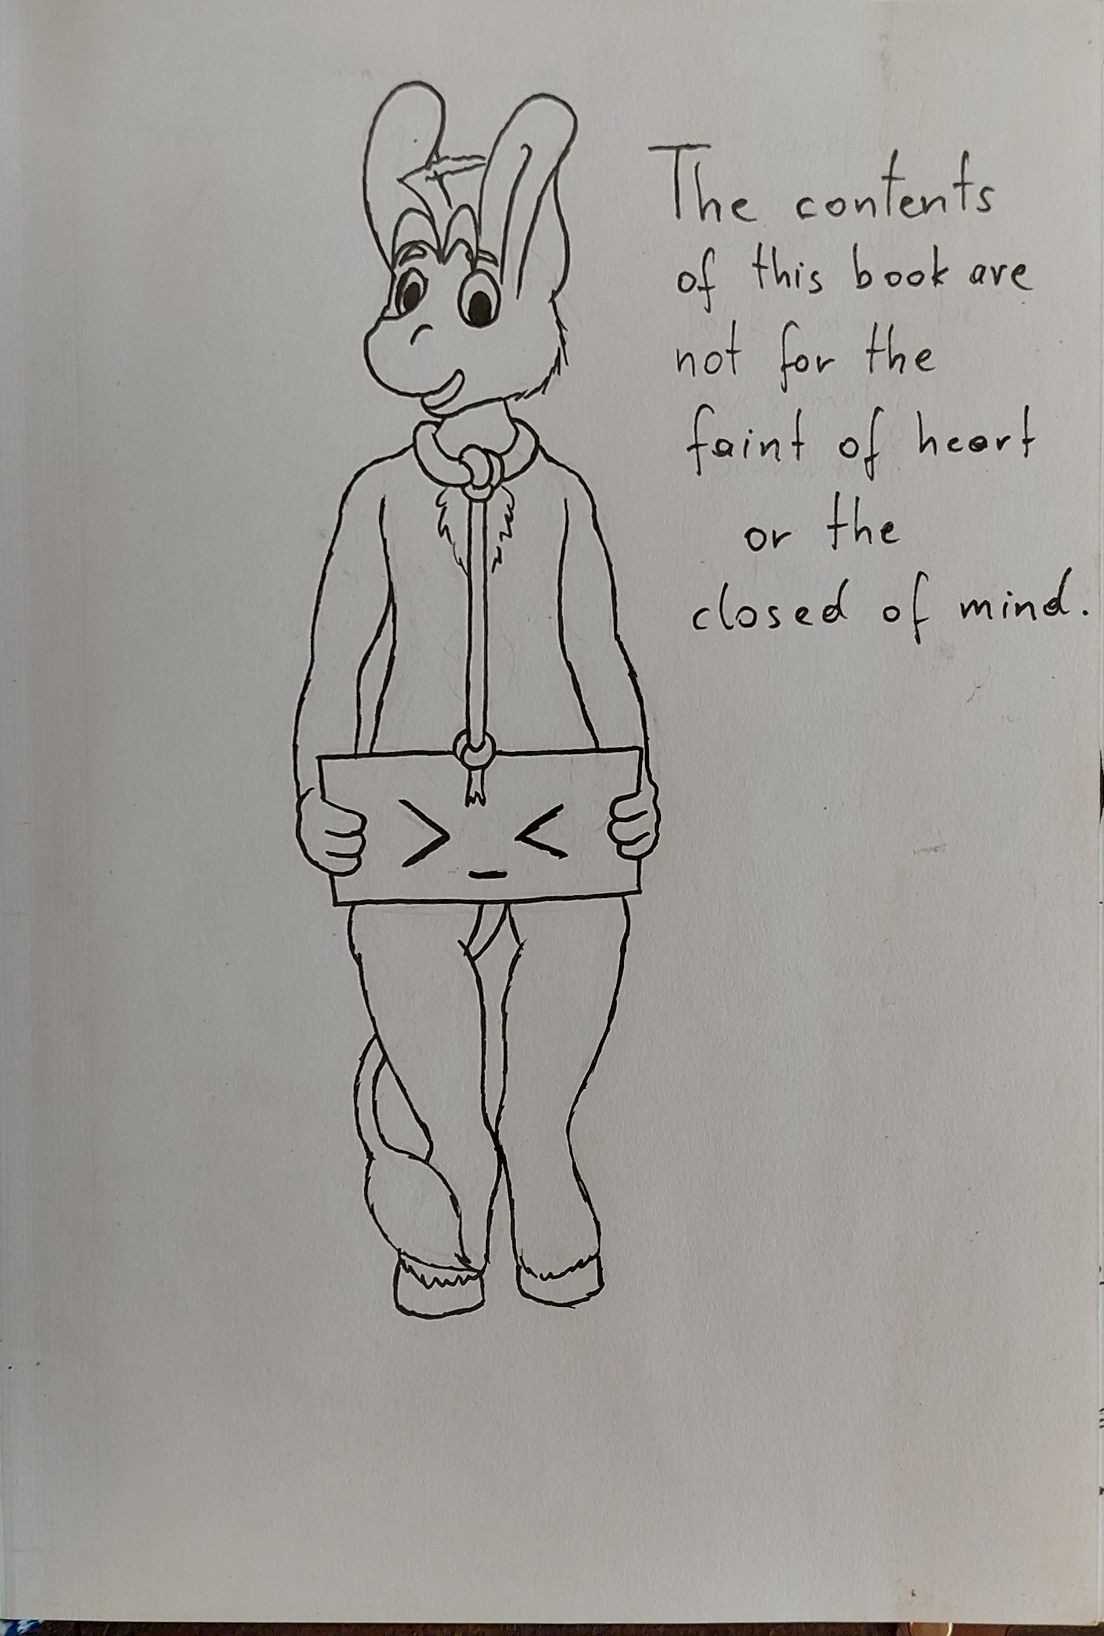 The contents
of this book are
not for the
faint of heart
or the
closed of mind.
> _ <